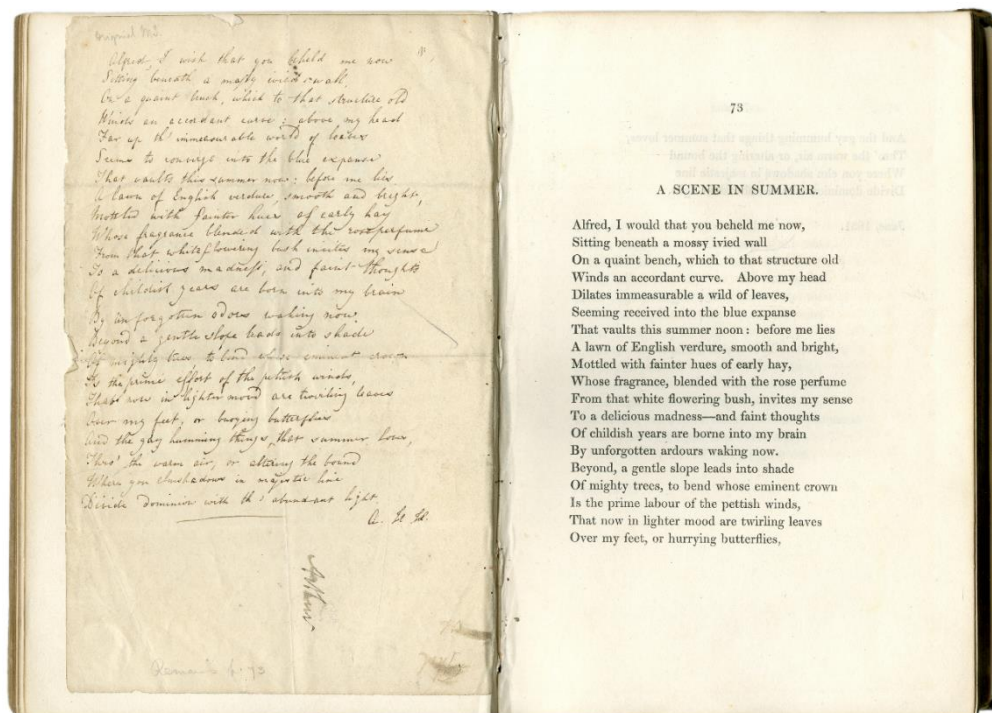 Original MS.
Alfred, I wish that you beheld me now
Sitting beneath a mossy ivied wall,
On a quaint bench, which to that structure old
Winds an accordant curve: above my head
Far up th' immeasurable world of leaves
Seems to converge into the blue expanse
That vaults this summer noon: before me lies
A lawn of English verdure, smooth and bright,
Mottled with fainter hues of early hay
Whose fragrance blended with the rose perfume
From that white flowering bush invites my sense
To a delicious madness, and faint thoughts
Of childish years are born into my brain
By unforgotten odours waking now.
Beyond a gentle slope leads into shade
Of mighty trees to bend whose eminent crown
Is the prime effort of the pettish winds
That now in lighter mood are twirling leaves
Over my feet, or buoying butterflies
And the gay humming things, that summer loves,
Thro' the warm air, or altering the bound
Where yon elmshadows in majestic line
Divide dominion with th' abundant light.
A. H. H.
73
A SCENE IN SUMMER.
Alfred, I would that you beheld me now,
Sitting beneath a mossy ivied wall
On a quaint bench, which to that structure old
Winds an accordant curve. Above my head
Dilates immeasurable a wild of leaves,
Seeming received into the blue expanse
That vaults this summer noon: before me lies
A lawn of English verdure, smooth and bright,
Mottled with fainter hues of early hay,
Whose fragrance, blended with the rose perfume
From that white flowering bush, invites my sense
To a delicious madness—and faint thoughts
Of childish years are borne into my brain
By unforgotten ardours waking now.
Beyond, a gentle slope leads into shade
Of mighty trees, to bend whose eminent crown
Is the prime labour of the pettish winds,
That now in lighter mood are twirling leaves
Over my feet, or hurrying butterflies,